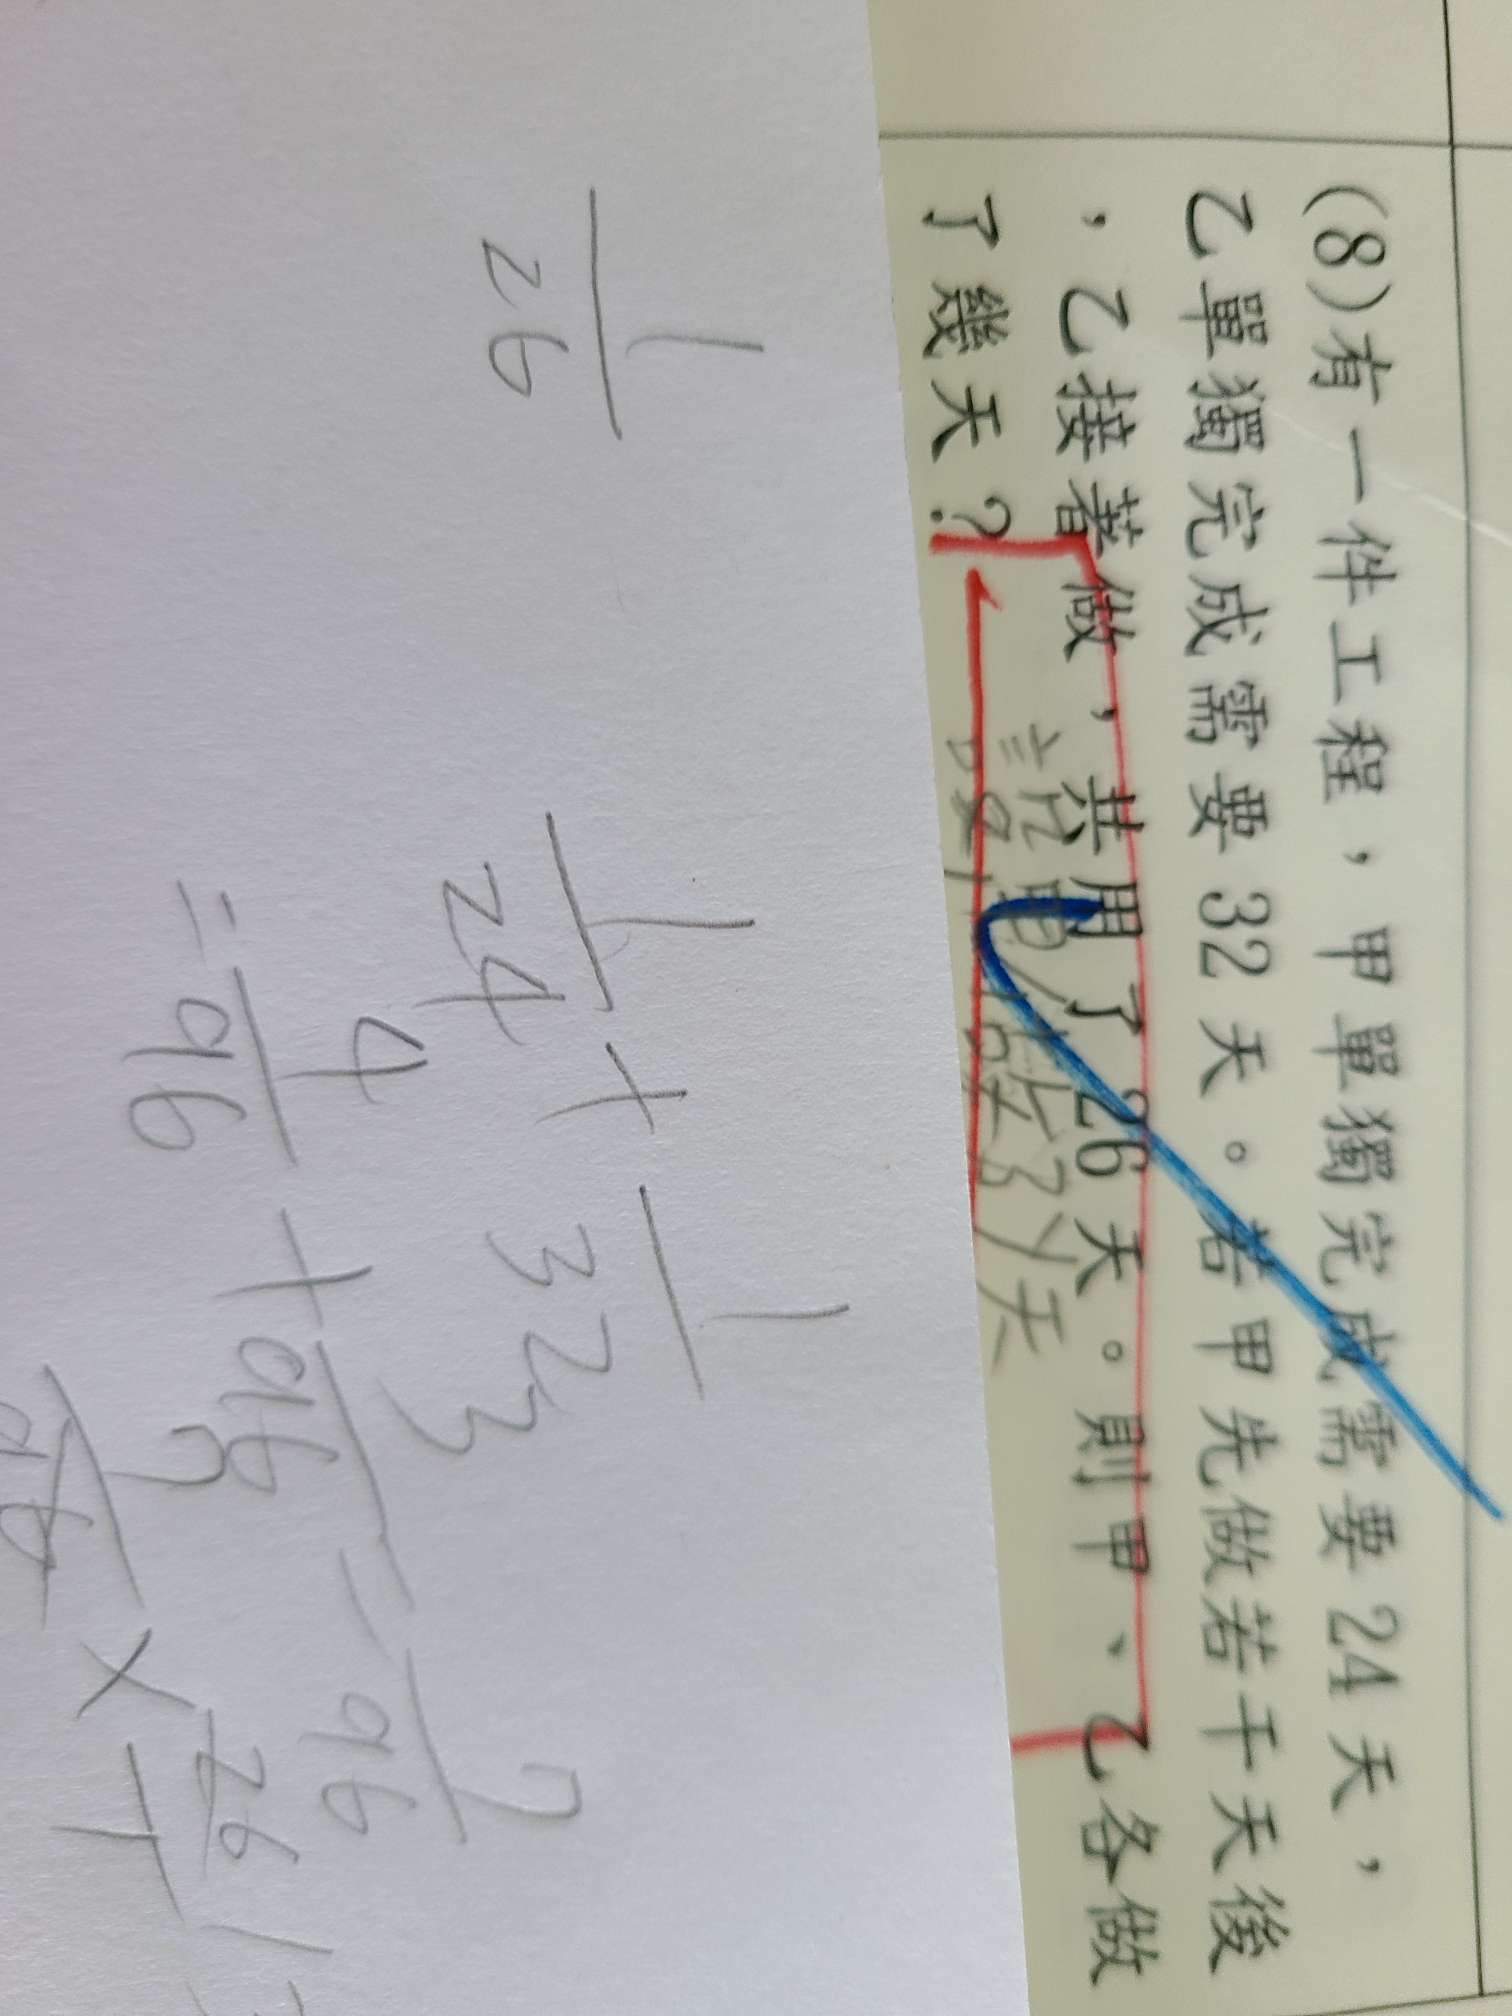 (8)有一件工程，甲單獨完成需要24天，
乙單獨完成需要32天。若甲先做若干天後
，乙接著做，共用了26天。則甲、乙各做
了幾天?
1/26
1/24 + 1/32
= 4/96 + 3/96 = 7/96
7/96 ×
26/1